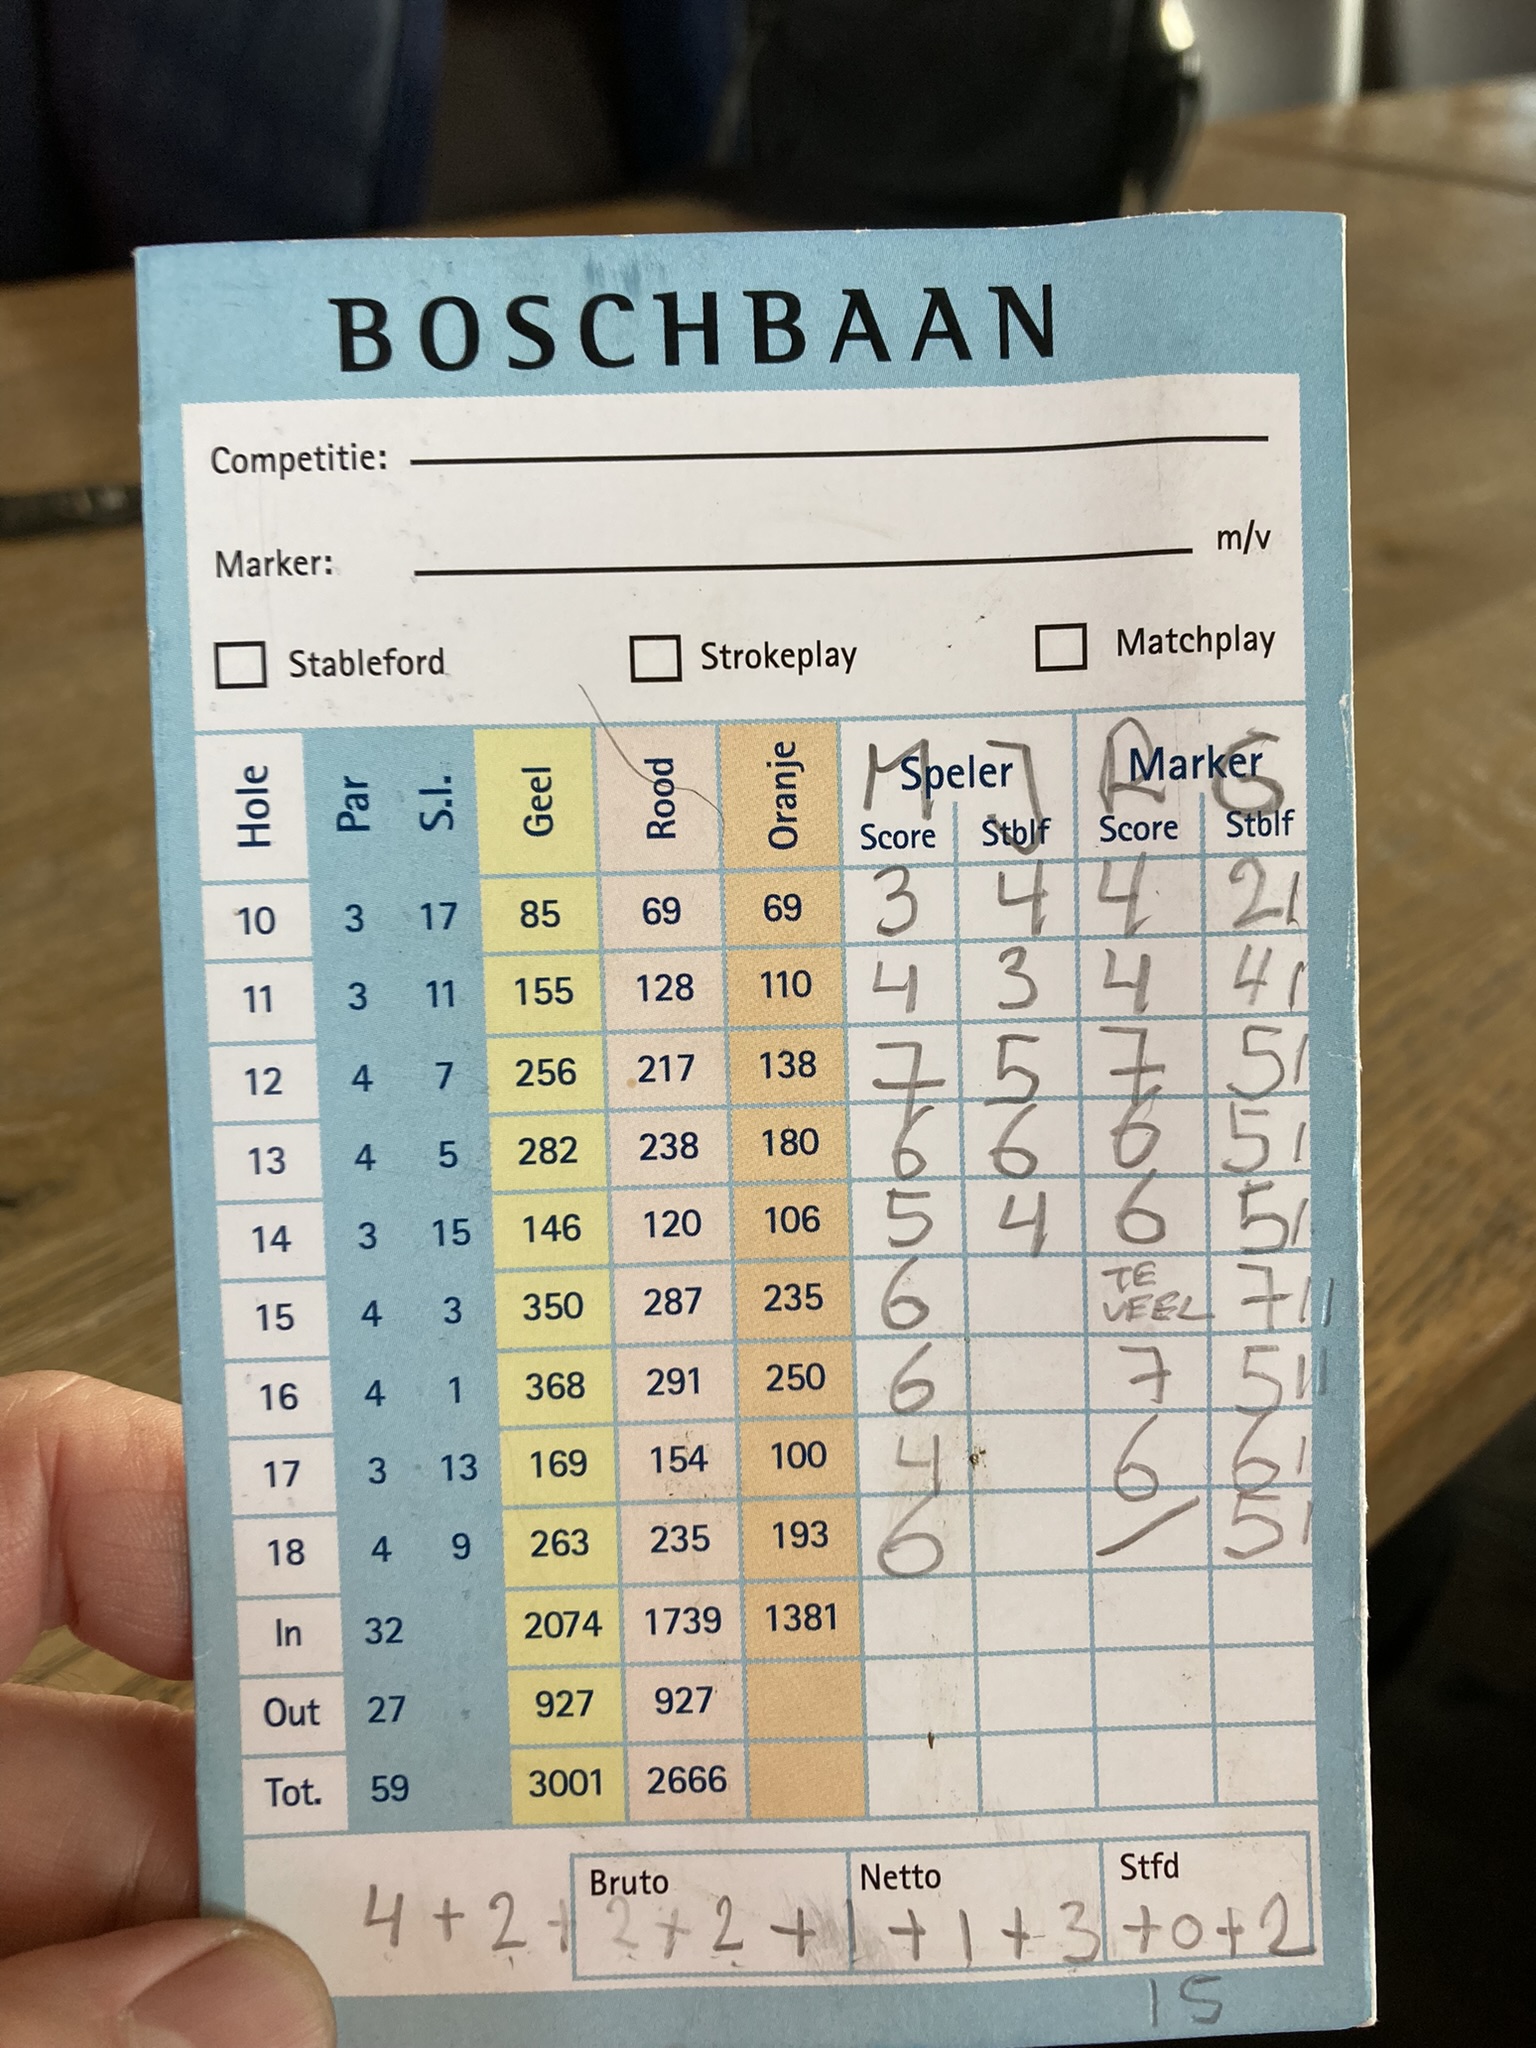 BOSCHBAAN
Competitie:
Marker: m/v
Stableford Strokeplay Matchplay
Hole Par S.I. Geel Rood Oranje Speler Marker
M J R G
Score Stblf Score Stblf
10 3 17 85 69 69 3 4 4 2 |
11 3 11 155 128 110 4 3 4 4 |
12 4 7 256 217 138 7 5 7 5 |
13 4 5 282 238 180 6 6 6 5 |
14 3 15 146 120 106 5 4 6 5 |
15 4 3 350 287 235 6 TE VEEL 7 ||
16 4 1 368 291 250 6 7 5 ||
17 3 13 169 154 100 4 6 6 |
18 4 9 263 235 193 6 / 5 |
In 32 2074 1739 1381
Out 27 927 927
Tot. 59 3001 2666
Bruto Netto Stfd
4 + 2 + 2 + 2 + 1 + 1 + 3 + 0 + 2
15